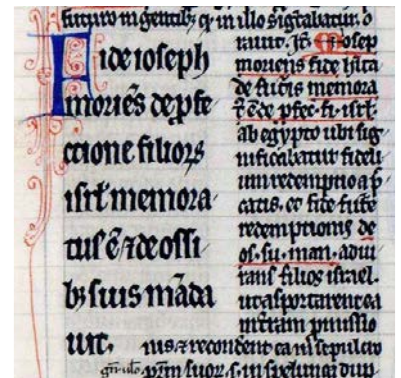 futuro in gentib; q̄ in illo sig̃tabatur. ō
Fide ioseph
moriēs de p̱fe
ctione filioꝝ
isrł memora
tus ē ⁊ de ossi
bꝫ suis māda
uit.
moriens fide
de filiis memora
tꝰ ē de p̱fec. fi. isrł.
ab egypto ubi sig
nificabatur fideli
um redemptio a p̄
catis. et fide future
redemptionis de
os. su. man. adiu
rans filios israel.
ut asportarent ea
in terram
nis ⁊ reconderent ea in sepulcro
suoꝝ .s. in spelunca dup